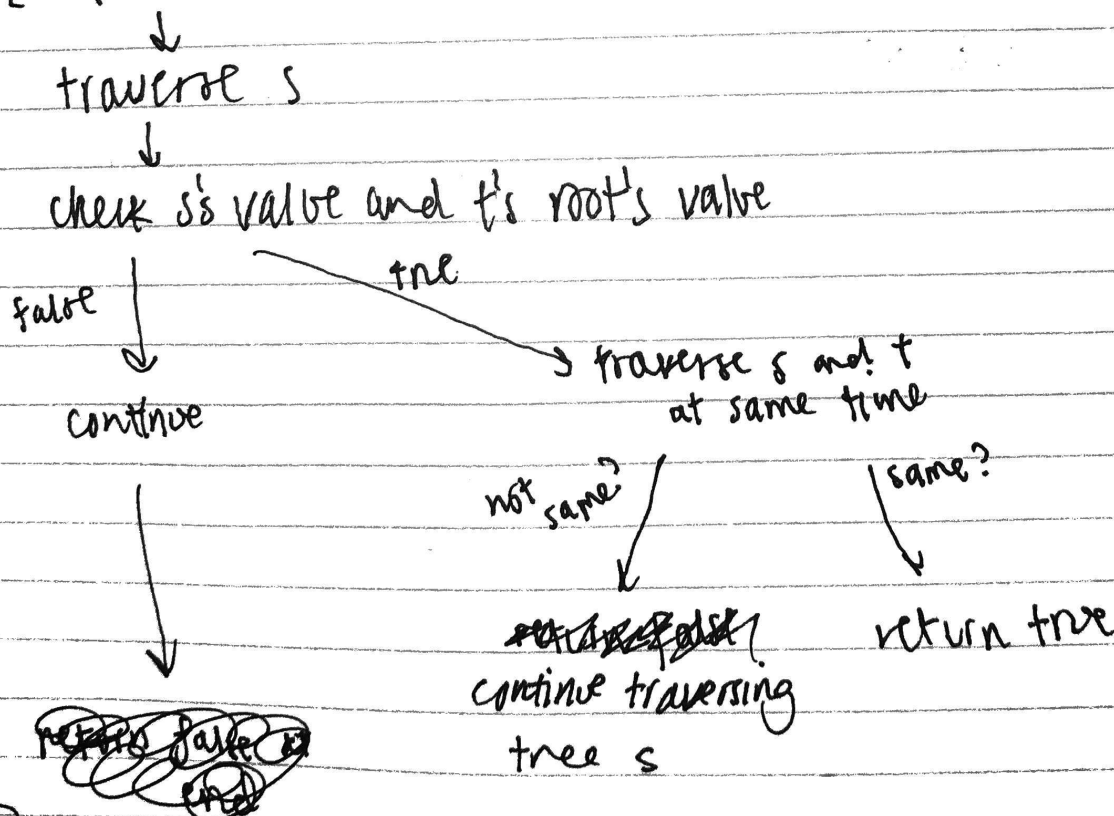 traverse s
check s's value and t's root's value
false
true
continue
traverse s and t
at same time
not
same?
same?
return true
continue traversing
tree s